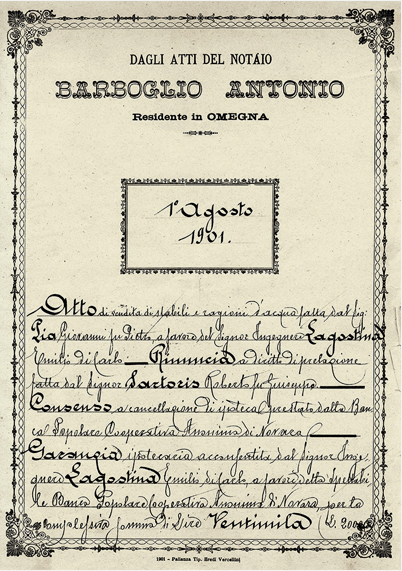 DAGLI ATTI DEL NOTAIO
BARBOGLIO ANTONIO
Residente in OMEGNA
1° Agosto
1901.
Atto di vendita di stabili e ragioni d'acqua fatta dal sig.
Pia Giovanni fu Pietro, a favore del Signor Ingegnere Lagostina
Emilio di Carlo — Rinuncia a diritti di prelazione
fatta dal Signor Sartoris Roberto fu Giuseppe. —
Consenso a cancellazione di ipoteca prestato dalla Ban-
ca Popolare Cooperativa Anonima di Novara. —
Garanzia ipotecaria acconsentita dal Signor Inge-
gnere Lagostina Emilio di Carlo, a favore della spettabi-
le Banca Popolare Cooperativa Anonima di Novara, per la
complessiva somma di Lire Ventimila (L. 20000
1901 - Pallanza Tip. Eredi Vercellini